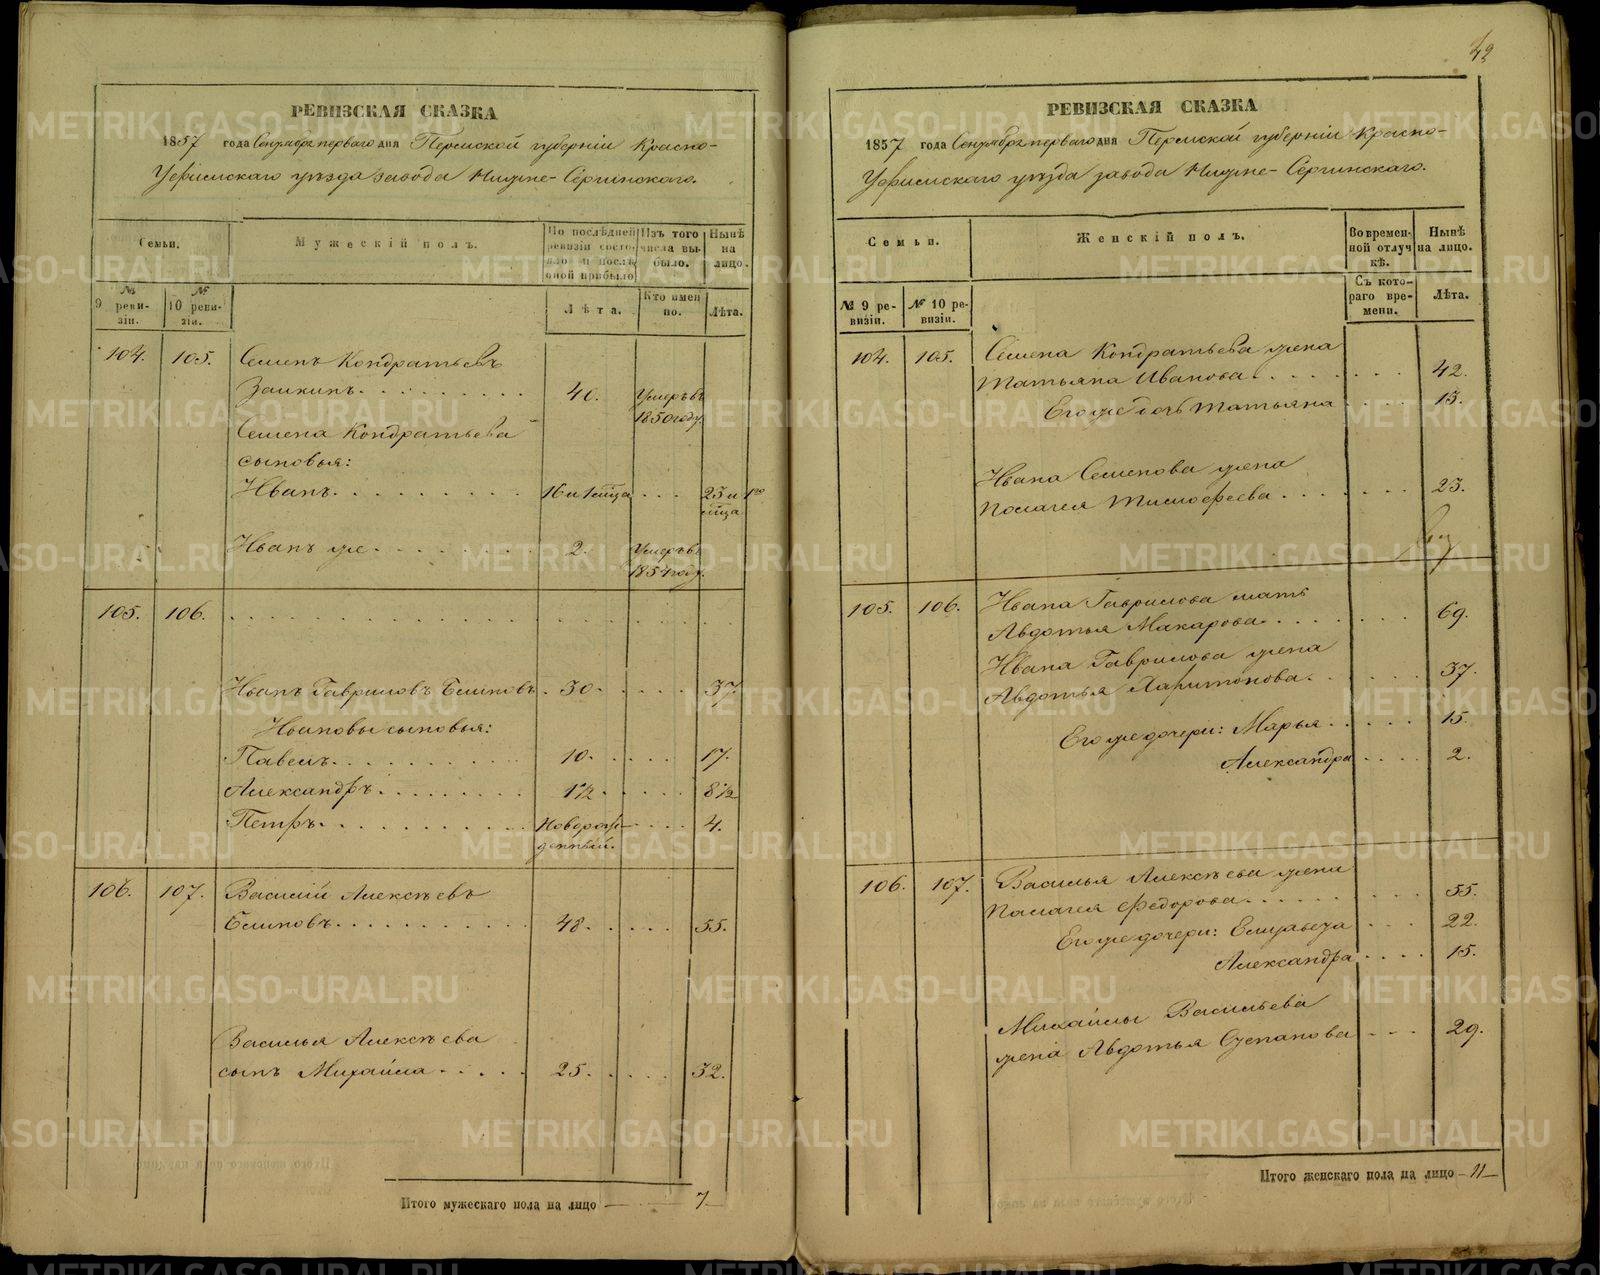 42
РЕВИЗСКАЯ СКАЗКА
1857 года Сентября перваго дня Пермской губернiи Красно-
Уфимскаго уѣзда завода Нижне-Сергинскаго.
Семьи.
Мужескiй полъ.
По послѣдней ревизiи состояло и послѣ оной прибыло
Изъ того числа выбыло.
Нынѣ на лицо.
№ 9 ревизiи.
№ 10 ревизiи.
Лѣта.
Кто именно.
Лѣта.
104. 105. Семенъ Кондратьевъ
Заикинъ 40. Умеръ въ
1850 году.
Семена Кондратьева
сыновья:
Иванъ 16 и 1 м̃ца 23 и
м̃ца
Иванъ же 2. Умеръ въ
1854 году.
105. 106.
Иванъ Гавриловъ Блиновъ 30 37
Ивановы сыновья:
Павелъ 10 17.
Александръ 1½ 8½
Петръ Новорож-
денный. 4.
106. 107. Василiй Алексѣевъ
Блиновъ 48 55.
Василья Алексѣева
сынъ Михайла 25 32.
Итого мужескаго пола на лицо 7
РЕВИЗСКАЯ СКАЗКА
1857 года Сентября перваго дня Пермской губернiи Красно-
Уфимскаго уѣзда завода Нижне-Сергинскаго.
Семьи.
Женскiй полъ.
Во временной отлучкѣ.
Нынѣ на лицо.
№ 9 ревизiи.
№ 10 ревизiи.
Съ котораго времени.
Лѣта.
104. 105. Семена Кондратьева жена
Татьяна Иванова 42.
Его же дочь Татьяна 13.
Ивана Семенова жена
Полагея Тимофеева 23.
105. 106. Ивана Гаврилова мать
Авдотья Макарова 69.
Ивана Гаврилова жена
Авдотья Харитонова 37.
Его же дочери: Марья 15.
Александра 2.
106. 107. Василья Алексѣева жена
Палагея Федорова 55.
Его же дочери: Елизавета 22.
Александра 15.
Михайлы Васильева
жена Авдотья Степанова 29.
Итого женскаго пола на лицо 11
METRIKI.GASO-URAL.RU